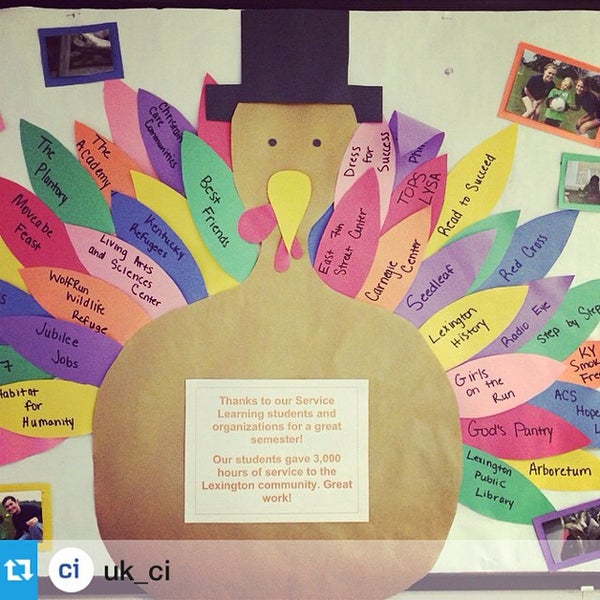 Christian
Care
Communities
The
Plantory
The
Academy
Best
Friends
Kentucky
Refugees
Moveable
Feast
Living Arts
and Sciences
Center
WolfRun
Wildlife
Refuge
Jubilee
Jobs
7
Habitat
for
Humanity
Dress
for
Success
Phi
TOPS
LYSA
Read to Succeed
East 7th
Street Center
Carnegie
Center
Seedleaf
Red Cross
Lexington
History
Radio Eye
Step by Step
Girls
on the
Run
KY
Smoke
Free
ACS
Hope
L
God's Pantry
Lexington
Public
Library
Arboretum
Thanks to our Service
Learning students and
organizations for a great
semester!
Our students gave 3,000
hours of service to the
Lexington community. Great
work!
ci uk_ci